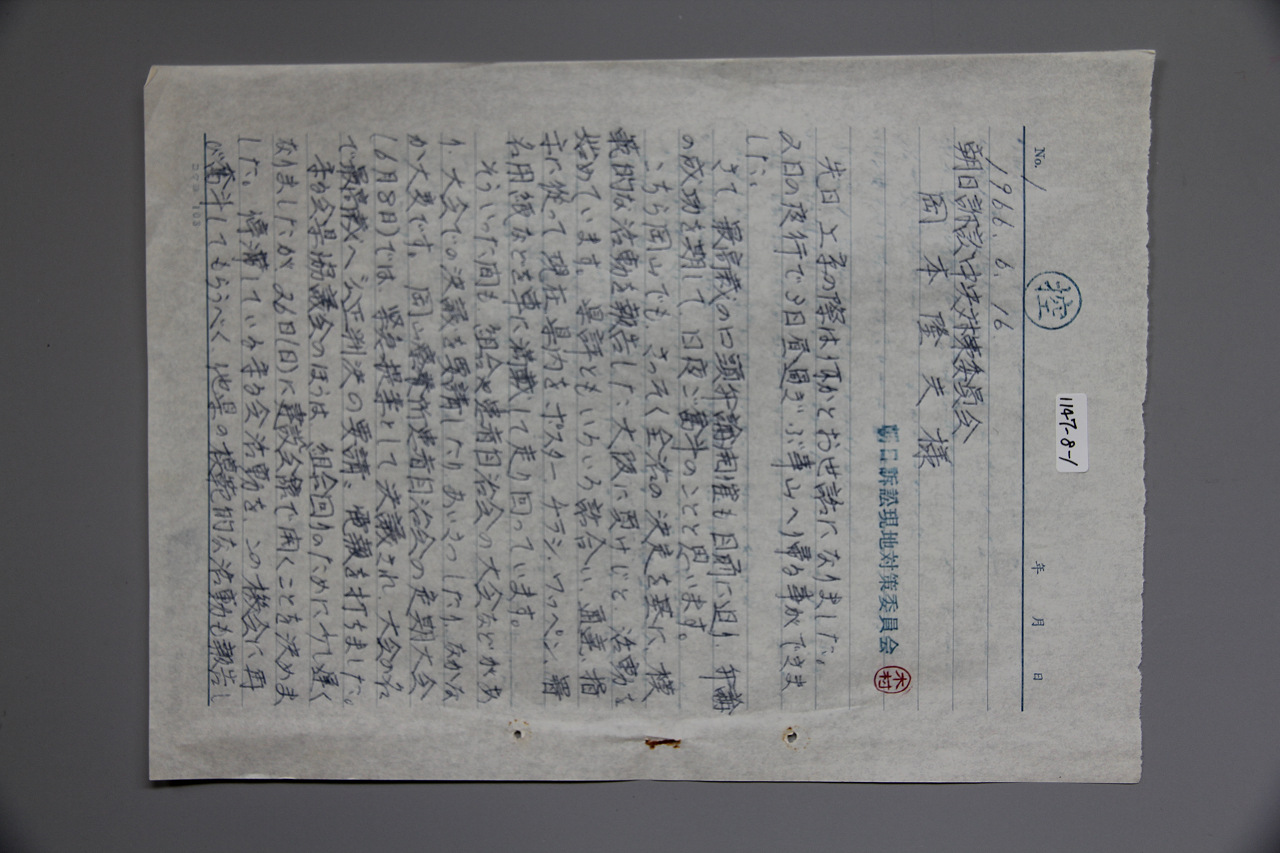 1147-8-1
控
No. 1
年 月 日
1966. 6. 16
朝日訴訟中央対策委員会
岡本隆夫様
朝日訴訟現地対策委員会
木村
先日上京の際は何かとお世話になりました。
2日の夜行で3日昼過ぎぶじ事山へり帰る事ができま
した。
さて、最高裁の口頭弁論開催も目前に迫り、弁論
の成功を期して、日夜ご奮斗のことと思います。
こちら岡山でも、さっそく全治の決定を基に、模
範的な活動を報告した大阪に負けじと、活動を
始めています。県評ともいろいろ話合い、同意、指
示に従って現在県内をポスター、チラシ、ワッペン、署
名用紙などを車に満載して走り回っています。
そういった間も、組合や患者自治会の大会などがあ
り、大会での決議を要請したりあいさつしたり、なかな
か大変です。岡山療養所患者自治会の定期大会
(6月8日)では、緊急提案として決議され、大会から
で最高裁へ公正判決の要請、電報を打ちました。
守る会県協議会のほうは、組合回りのために少し遅く
なりましたが、26日(日)に建設会館で開くことを決めま
した。停滞している守る会活動を、この機会に再
び奮斗してもらうべく、他県の模範的な活動も報告し